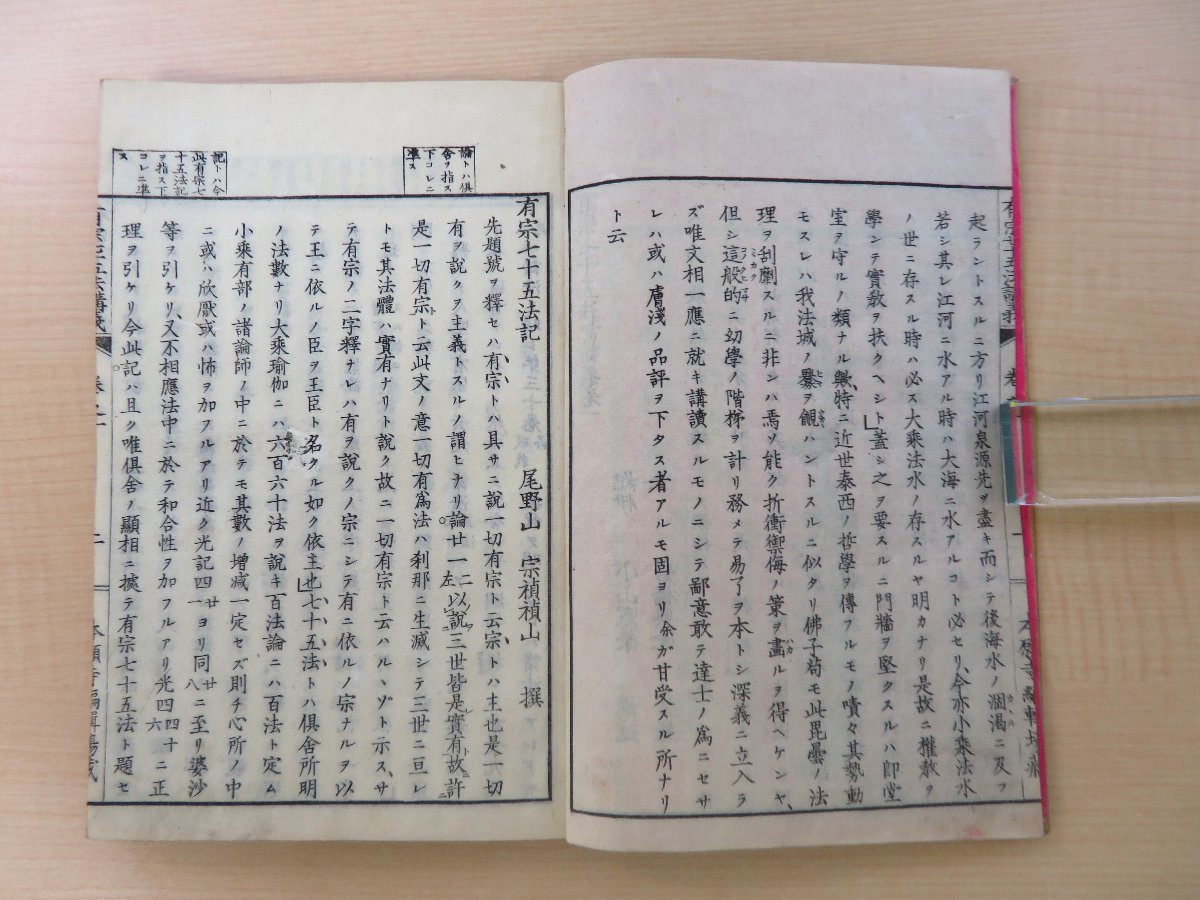 起ラントスルニ方リ江河泉源先ヅ盡キ而シテ後海水ノ涸渴ニ及フ
若シ其レ江河ニ水アル時ハ大海ニ水アルコト必セリ、今亦小乘法水
ノ世ニ存スル時ハ必ス大乘法水ノ存スルヤ明カナリ是故ニ權敎ヲ
學ンテ實敎ヲ扶クヘシト」蓋シ之ヲ要スルニ門牆ヲ堅クスルハ卽堂
室ヲ守ルノ類ナル歟、時ニ近世泰西ノ哲學ヲ傳フルモノ嘖々其勢動
モスレハ我法城ノ釁ヲ覗ハントスルニ似タリ佛子苟モ此毘曇ノ法
理ヲ刮劘スルニ非ンハ焉ソ能ク折衝禦侮ノ策ヲ畫ルヲ得ヘケンヤ、
但シ這般的ニ幼學ノ階梯ヲ計リ務メテ易了ヲ本トシ深義ニ立入ラ
ズ唯文相一應ニ就キ講讀スルモノニシテ鄙意敢テ達士ノ爲ニセサ
レハ或ハ膚淺ノ品評ヲ下タス者アルモ固ヨリ余ガ甘受スル所ナリ
ト云
論トハ俱
舍ヲ指ス
下コレニ
準ス
有宗七十五法記 尾野山 宗禎禎山 撰
先題號ヲ釋セハ有宗トハ具サニ說一切有宗ト云宗トハ主也是一切
有ヲ說クヲ主義トスルノ謂ヒナリ論廿一二左以說三世皆是實有故許
是一切有宗ト云此文ノ意一切有爲法ハ刹那ニ生滅シテ三世ニ亘レ
トモ其法體ハ實有ナリト說ク故ニ一切有宗ト云ハルヽゾト示ス、サ
テ有宗ノ二字釋ナレハ有ヲ說クノ宗ニシテ有ニ依ルノ宗ナルヲ以
テ王ニ依ルノ臣ヲ王臣ト名クル如ク依主也」七十五法トハ俱舍所明
ノ法數ナリ大乘瑜伽ニハ六百六十法ヲ說キ百法論ニハ百法ト定ム
小乘有部ノ諸論師ノ中ニ於テモ其數ノ增減一定セズ則チ心所ノ中
ニ或ハ欣厭或ハ怖ヲ加フルアリ近ク光記四一廿ヨリ同廿八ニ至リ婆沙
等ヲ引ケリ、又不相應法中ニ於テ和合性ヲ加フルアリ光四四十六ニ正
理ヲ引ケリ今此記ハ且ク唯俱舍ノ顯相ニ據テ有宗七十五法ト題セ
記トハ今
此有宗七
十五法記
ヲ指ス下
コレニ準
ス